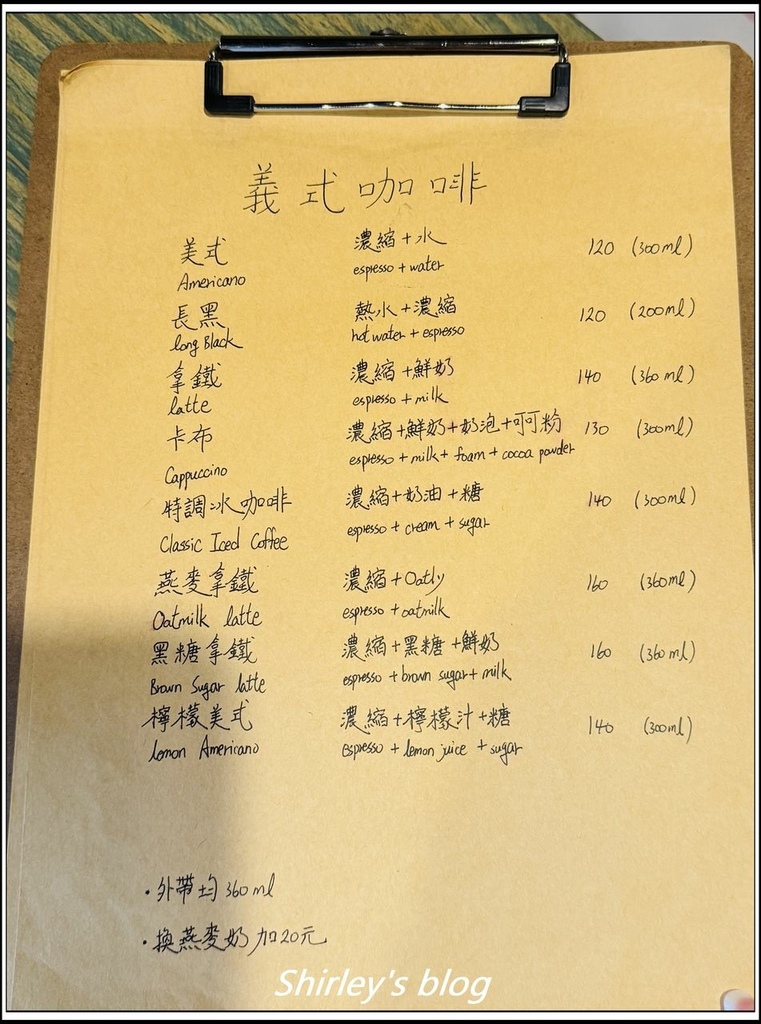 義式咖啡
美式 濃縮+水 120 (300ml)
Americano espresso + water
長黑 熱水+濃縮 120 (200ml)
long Black hot water + espresso
拿鐵 濃縮+鮮奶 140 (360ml)
latte espresso + milk
卡布 濃縮+鮮奶+奶泡+可可粉 130 (300ml)
Cappuccino espresso + milk + foam + cocoa powder
特調冰咖啡 濃縮+奶油+糖 140 (300ml)
Classic Iced Coffee espresso + cream + sugar
燕麥拿鐵 濃縮+Oatly 160 (360ml)
Oatmilk latte espresso + oatmilk
黑糖拿鐵 濃縮+黑糖+鮮奶 160 (360ml)
Brown Sugar latte espresso + brown sugar + milk
檸檬美式 濃縮+檸檬汁+糖 140 (300ml)
lemon Americano espresso + lemon juice + sugar
·外帶均360ml
·換燕麥奶加20元
Shirley's blog